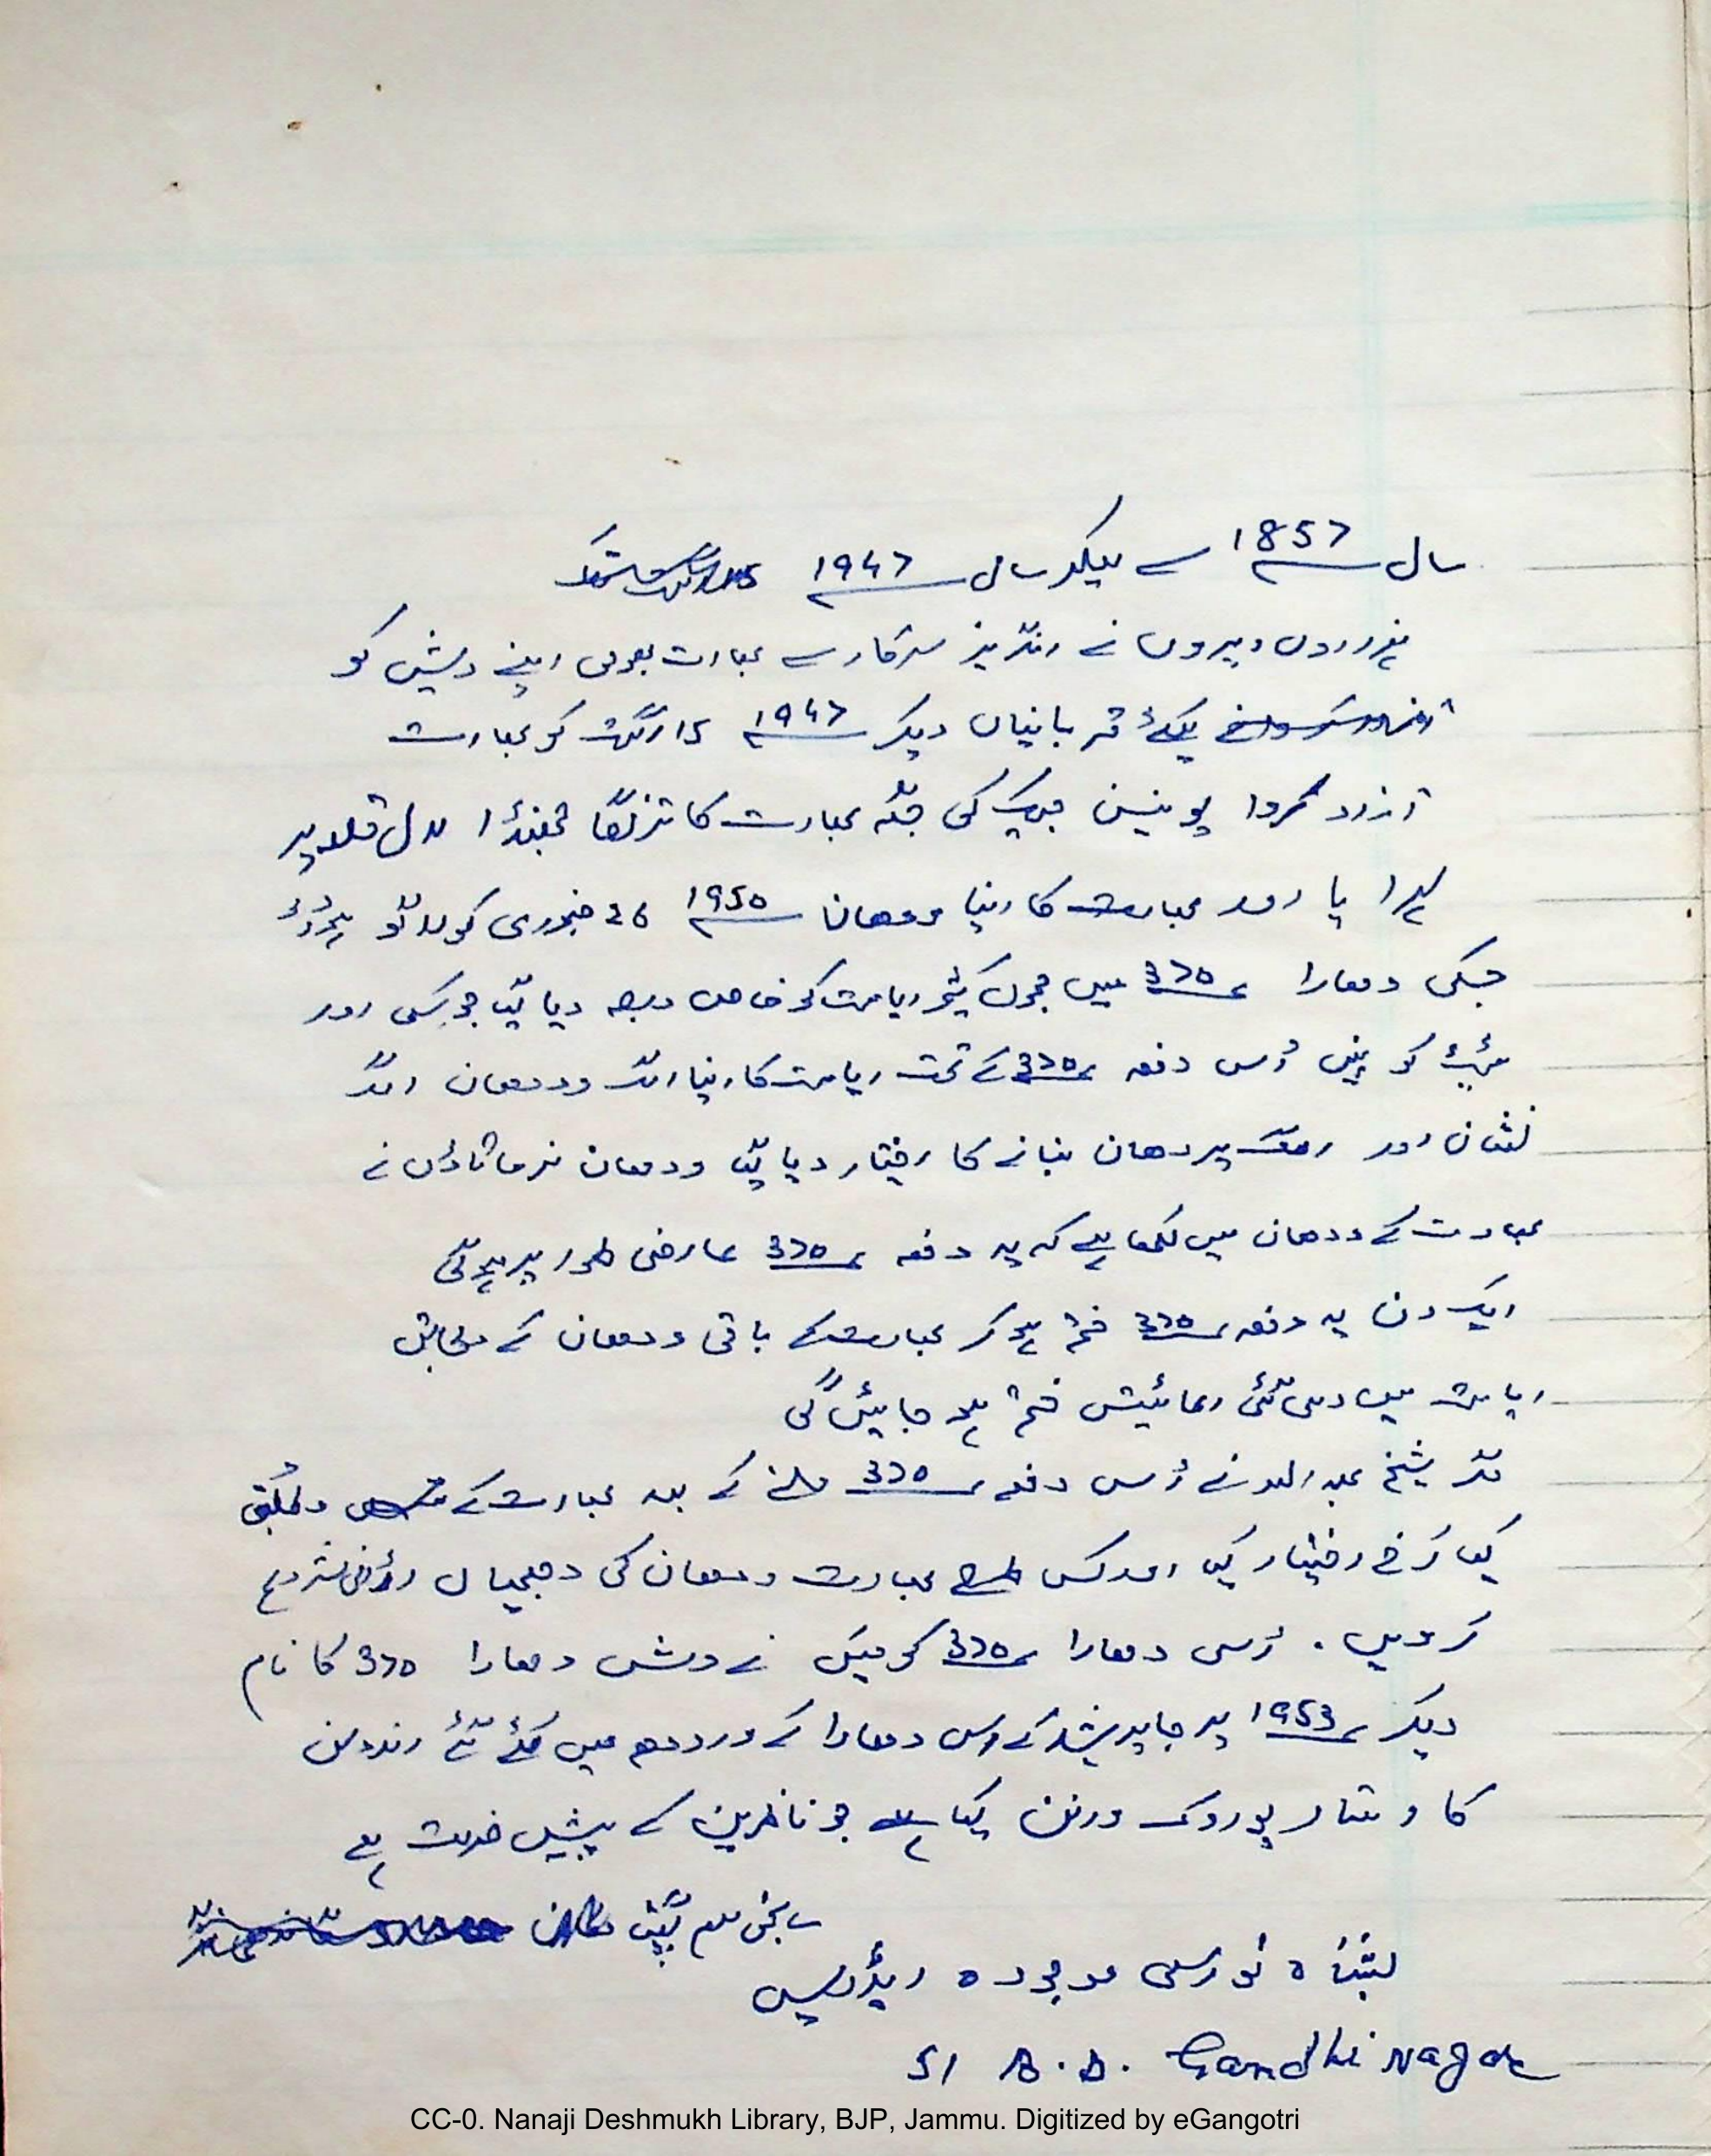 سال 1857 سے لیکر سال 1947
ہزاروں ویروں نے انگریز سرکار سے بھارت بھومی اپنے دیش کو
کیلئے قربانیاں دیکر 1947 15 اگست کو بھارت
آزاد کروا یونین جیک کی جگہ بھارت کا ترنگا جھنڈا لال قلعہ پر
لہرایا اور بھارت کا اپنا ودھان 1950 26 جنوری کو لاگو ہوا
جسکی دھارا 370 میں جموں کشمیر ریاست کو خاص درجہ دیا گیا جو کسی اور
کو نہیں اس دفعہ 370 کے تحت ریاست کا اپنا الگ ودھان الگ
نشان اور الگ پردھان بنانے کا اختیار دیا گیا ودھان نرماتاؤں نے
بھارت کے ودھان میں لکھا ہے کہ یہ دفعہ 370 عارضی طور پر ہوگی
ایک دن یہ دفعہ 370 ختم ہو کر بھارت کے باقی ودھان کے مطابق
ریاست میں دی گئی رعائیتیں ختم ہو جائیں گی
مگر شیخ عبداللہ نے اس دفعہ 370 ملنے کے بعد بھارت کے
کیا رخ اختیار کیا اور کس طرح بھارت ودھان کی دھجیاں اڑانی شروع
کردیں . اسی دھارا 370 کو میں نے وش دھارا 370 کا نام
دیکر 1953 پرجا پریشد کے اس دھارا کے ورودھ میں کئے گئے اندولن
کا وستار پوروک ورنن کیا ہے جو ناظرین کے پیش خدمت ہے
گپتا
موجودہ ایڈریس
51 A.D. Gandhi Nagar
CC-0. Nanaji Deshmukh Library, BJP, Jammu. Digitized by eGangotri